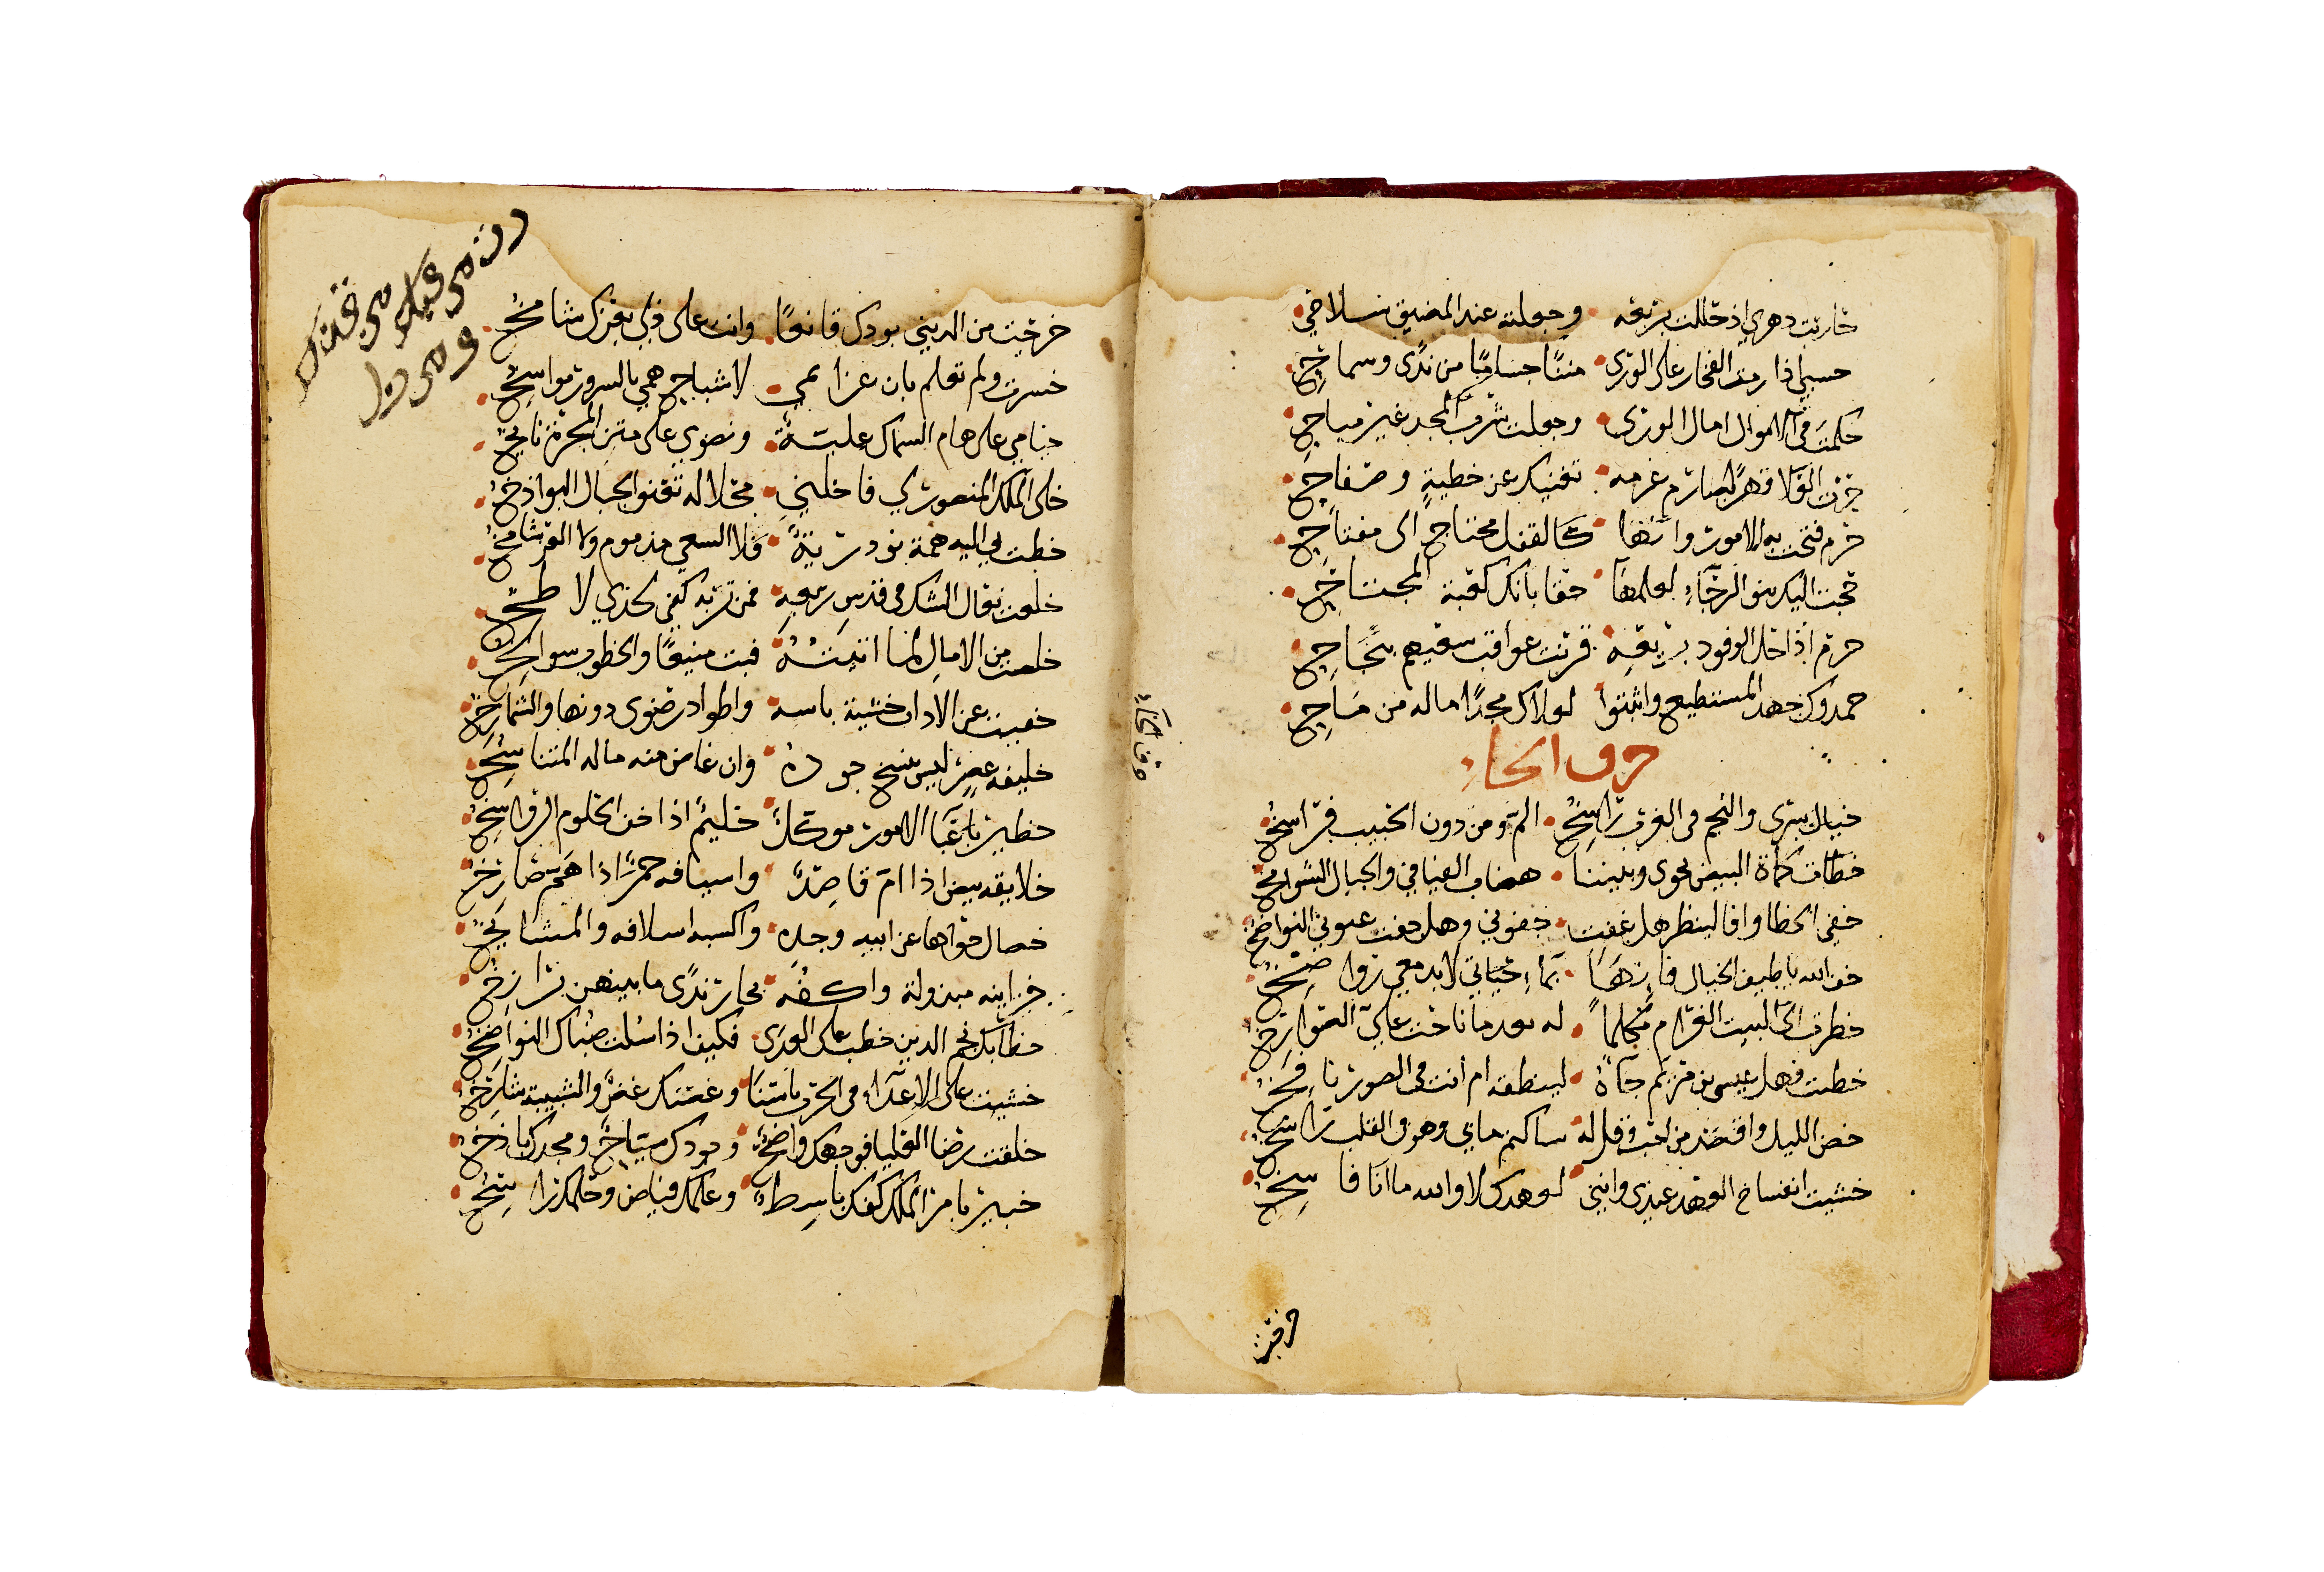 حاربت دهري اذ حللت بربعه وجعلته عند المضيق سلاحي
حسبي اذا رمت الفخار على الورى مننا جساما من ندى وسماح
حكمت في الاموال امال الورى وجعلت شرب المجد غير مباح
حزت العلا قهرا بصارم عزمه تغنيك عن خطية وصفاح
حرم فتحت به الامور وانها كالقفل محتاج الى مفتاح
حجت اليك بنو الرجاء لعلمها حقا بانك كعبة المحتاج
حرم اذا حل الوفود بربعه قرنت عواقب سعيهم بنجاح
حمدوك جهد المستطيع واثنوا لولاك مجدا ماله من ماح
حرف الخاء
خيال سرى والنجم في الغرب راسخ الم ومن دون الحبيب فراسخ
خطا كماة البيض نحوى وبيننا هضاب الفيافي والجبال الشوامخ
خفي الخطا وافا لينظر هل غفت جفوني وهل جفت عيوني النواضخ
خف الله يا طيف الخيال فانها بماء حياتي لا بدمعي نواضخ
خطرت الى البيت الغرام مكلما له بعد ما ناخت علي الصوارخ
خطبت فهل عيسى بن مريم جاه لينطقه ام انت في الصور نافخ
خض الليل واقصد من احب وقل له ساكتم ما بي وهو في القلب راسخ
خشيت انفساخ العهد عندي وانني لعهدك لا والله ما انا فاسخ
حرف الخاء
خرجت
خرجت من الدنيا بودك قانعا وانت على ذلي بعزك شامخ
خسرت ولم تعلم بان عزائمي لاشباح همي بالسرور مواسخ
خيامي على هام السماك علية ونضوي على متن المجرة نايخ
خلى الملك المنصور لي فاخلني محلا له تعنو الجبال البواذخ
خطت بي اليه همة نور زينة فلا السعي مذموم ولا القر شامخ
خلعت نعال الشك في قدس ربعه فمن تربه كفي لخدي لاطخ
خلصت من الامال لما اتيته فبت منيعا والخطوب سوانخ
خفيت عن الاذان خشية باسه واطواد رضوى دونها والشمارخ
خليفة عصر ليس ينسخ جوده وان غاض منه ماله المتناسخ
خطير باعباء الامور موكل خليم اذا خف الحلوم الرواسخ
خلايقه بيض اذا ام قاصد واسيافه حمر اذا هم صارخ
خصال حواها عن ابيه وجده واكسبه اسلافه والمشايخ
خزاينه مبذولة واكفه بحار ندى ما بينهن برازخ
خطابك نجم الدين خطب على العدى فكيف اذا سلت ضباك النواضخ
خشيت على الاعداء في الحرب باسنا وغصنك غض والشبيبة شارخ
خلقت رضا العليا فوجهك واضح وجودك سياح ومجدك باذخ
خبير بامر الملك كفك باسط وعلمك فياض وحلمك راسخ